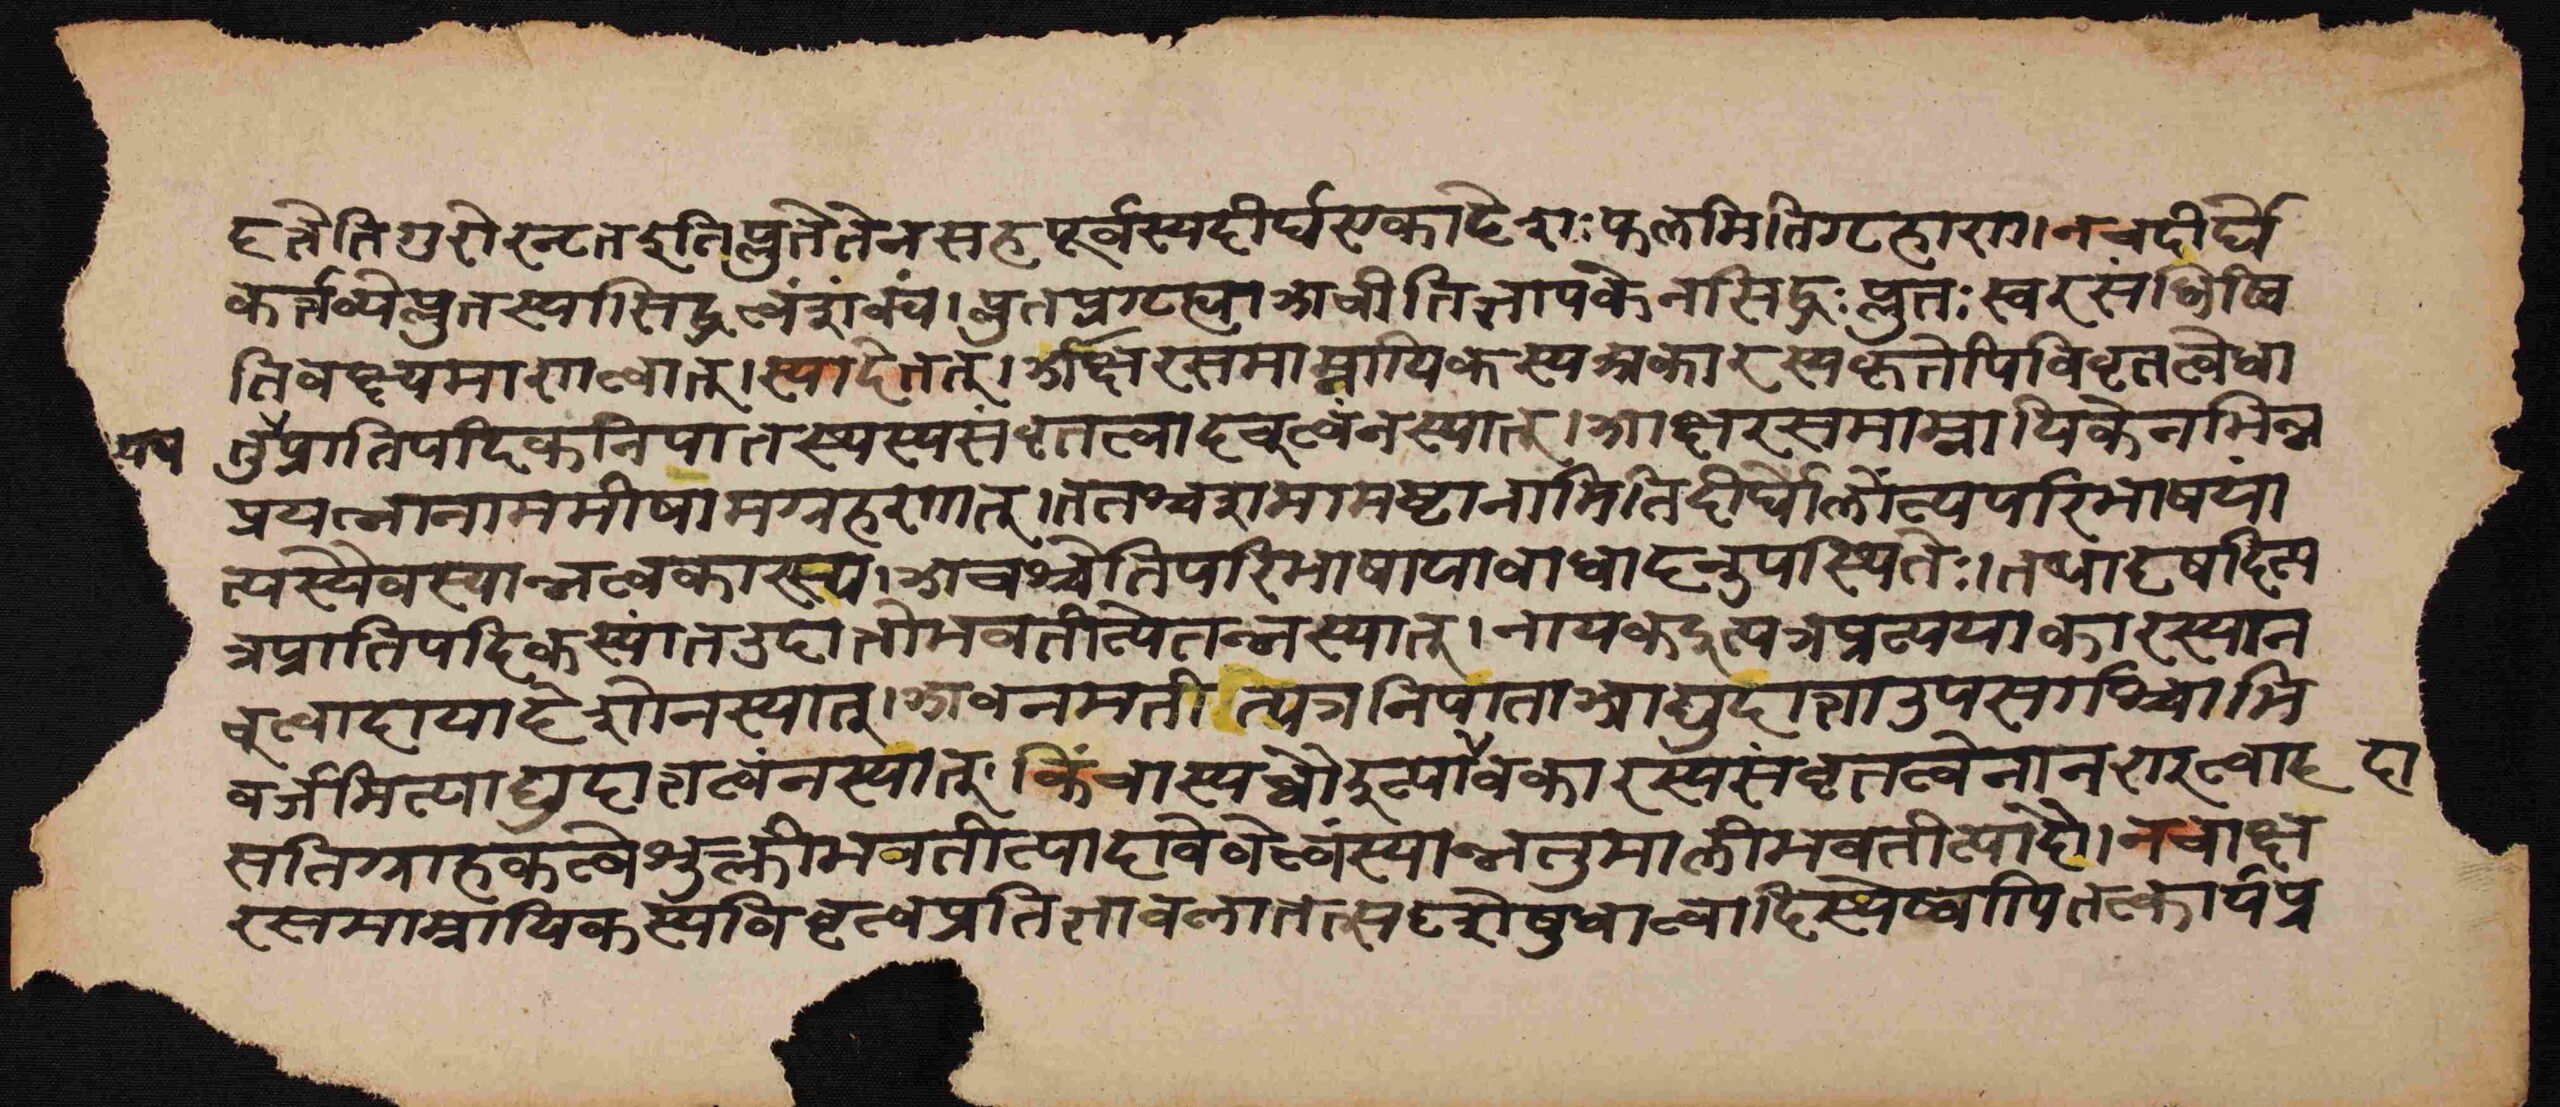 दृतेति गुरोरनृत इति प्लुते तेन सह पूर्वस्य दीर्घ एकादेशः फलमिति गृहाण। न च दीर्घे
कर्त्तव्ये प्लुतस्यासिद्धत्वं शंक्यं। प्लुतप्रगृह्या अचीति ज्ञापकेन सिद्धः प्लुतः स्वरसंधिष्वि
ति वक्ष्यमाणत्वात्। स्यादेतत्। अक्षरसमाम्नायिकस्य अकारस्य कृतेपि विवृतत्वे धा
तुप्रातिपदिकनिपातस्थस्य संवृतत्वादच्त्वं न स्यात्। आक्षरसमाम्नायिकेन भिन्न
प्रयत्नानाममीषामग्रहणात्। ततश्च शमामष्टानामिति दीर्घोलोंत्यपरिभाषयां
त्यस्यैव स्यान्नत्वकारस्य। अचश्चेति परिभाषाया बाधादनुपस्थितेः। तथा दृषदित्य
त्र प्रातिपदिकस्यांत उदात्तो भवतीत्येतन्न स्यात्। नायक इत्यत्र प्रत्ययाकारस्यान
च्त्वादायादेशो न स्यात्। अवनमतीत्यत्र निपाता आद्युदात्ता उपसर्गाश्चाभि
वर्जमित्याद्युदात्तत्वं न स्यात्। किं चास्य च्वौ इत्यवैवकारस्य संवृतत्वेनानण्त्वाद दा
सति ग्राहकत्वे शुक्लीभवतीत्यादावेवेत्वं स्यान्नतु मालीभवतीत्यादौ। न चाक्ष
रसमाम्नायिकस्य विवृतत्वप्रतिज्ञाबलात्तत्सदृशेषु धात्वादिस्थेष्वपि तत्कार्यप्र